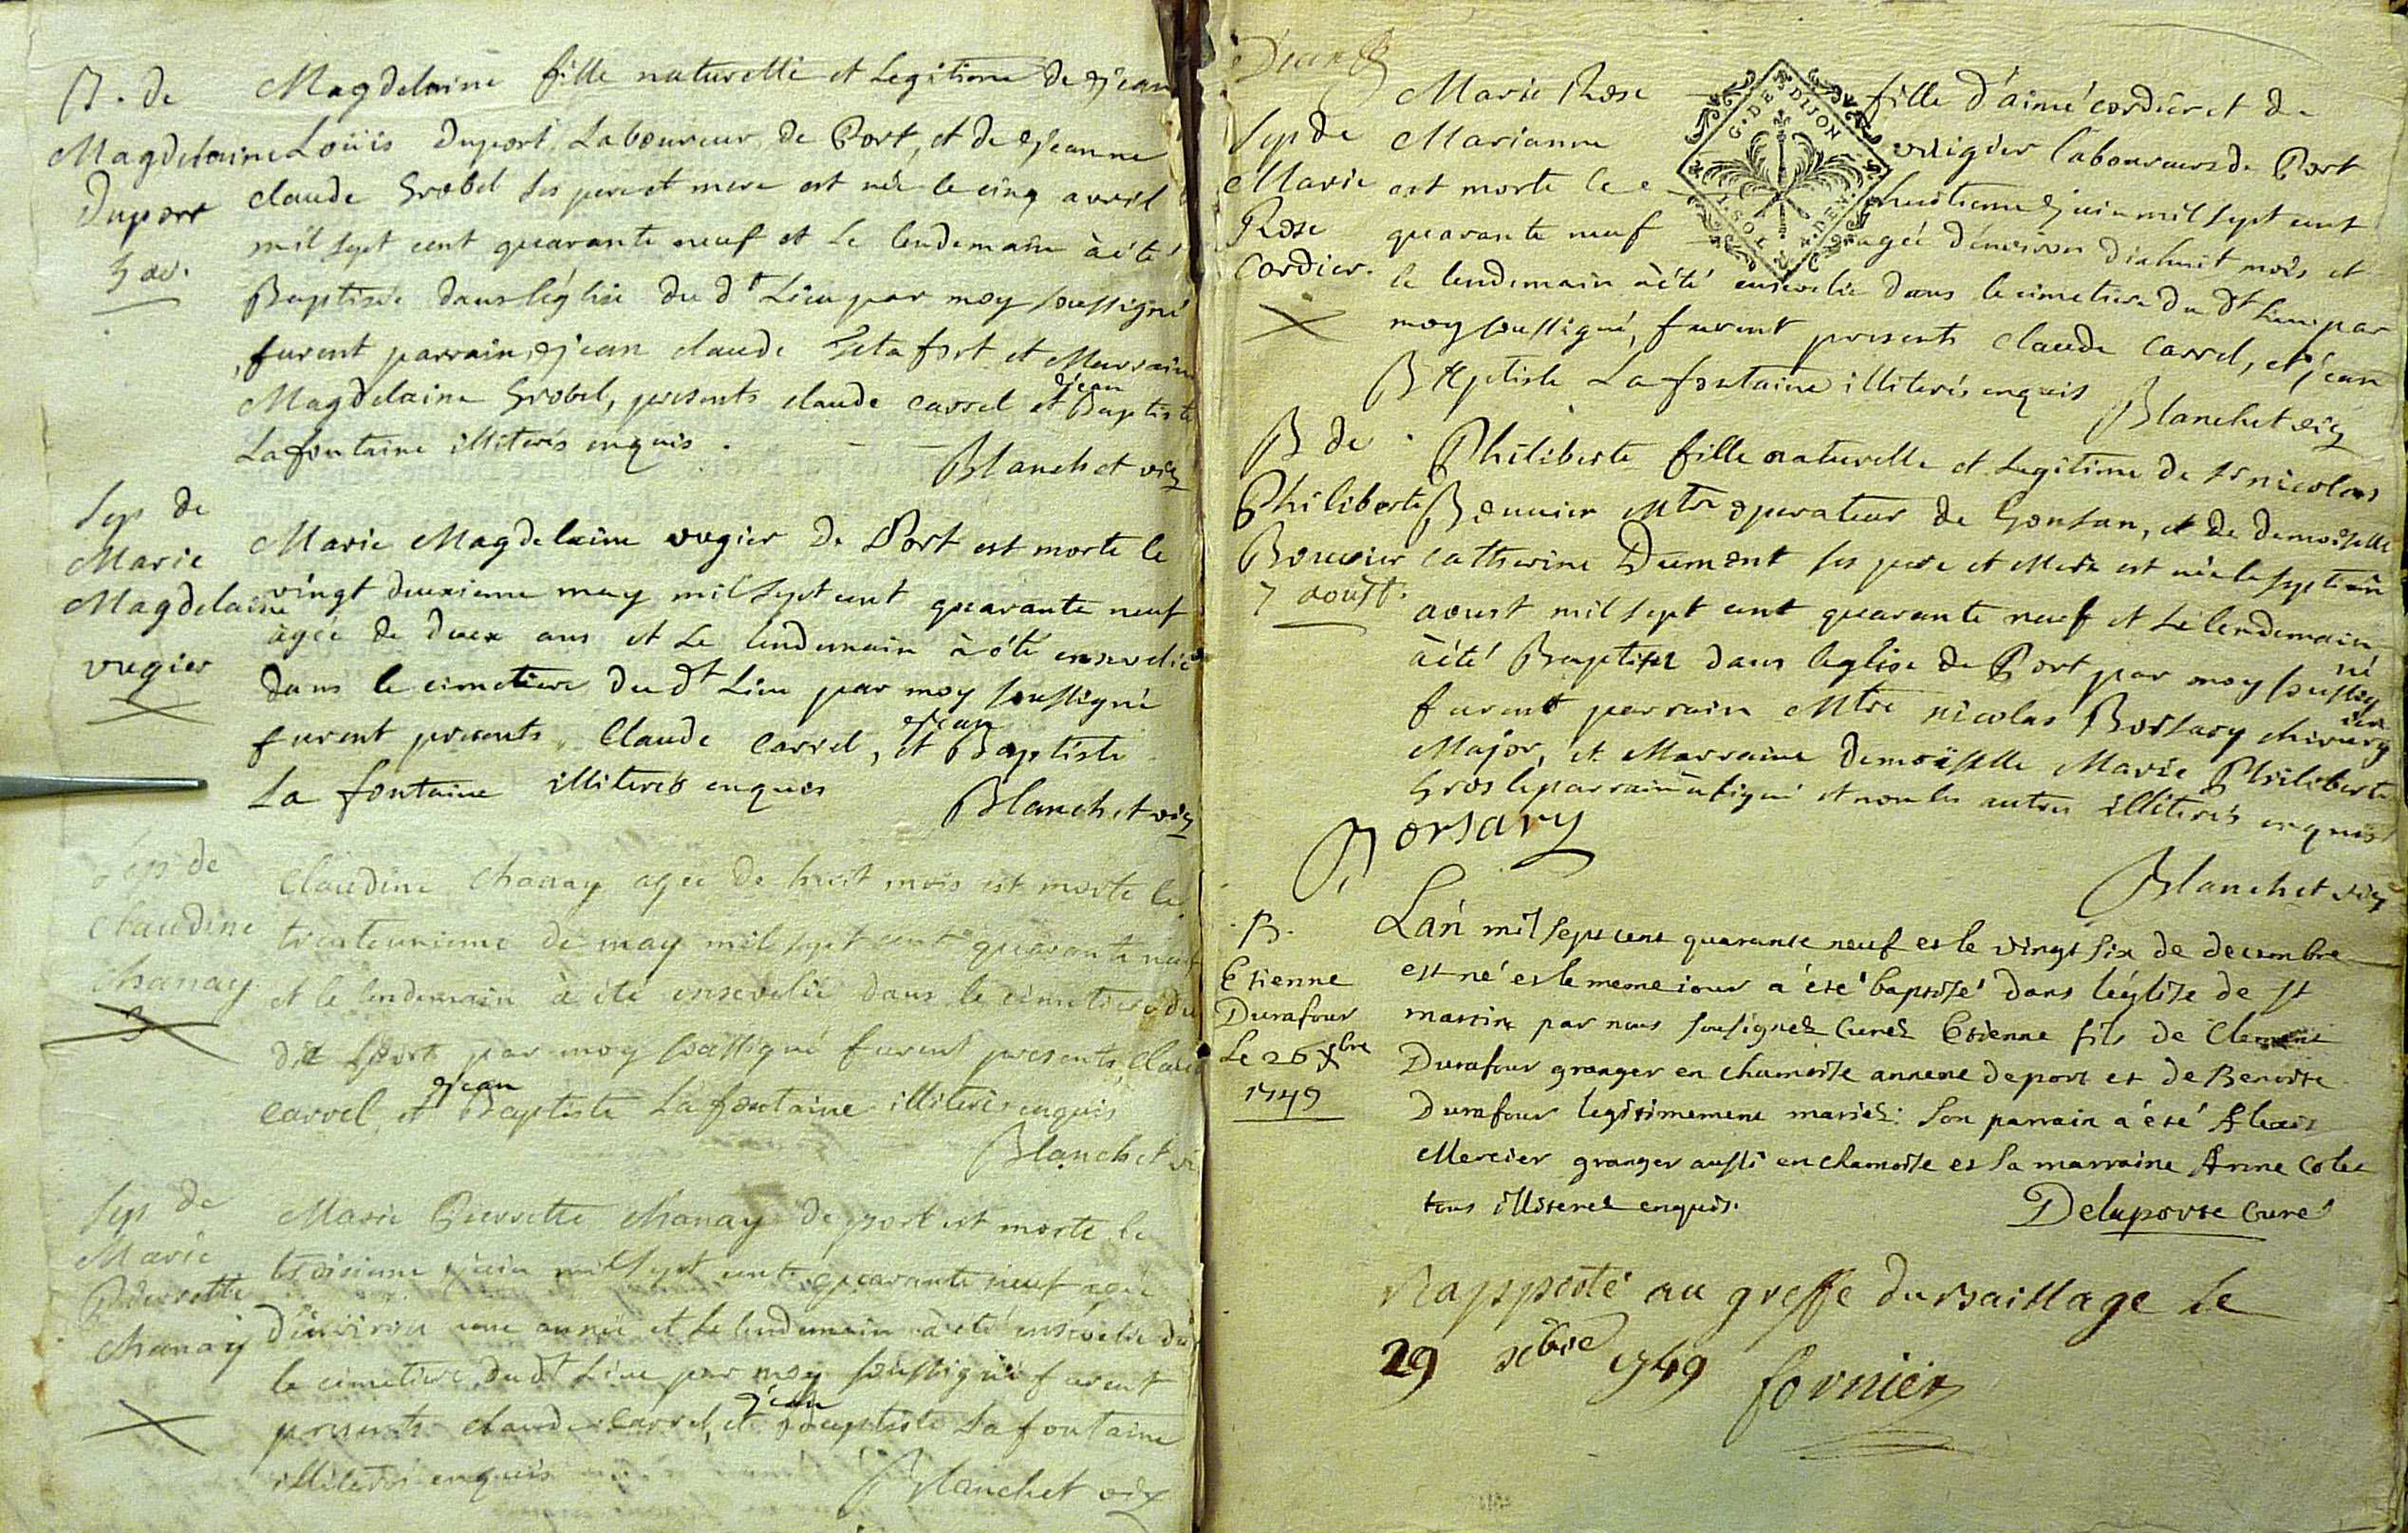 B. de
Magdelaine
Duport
5 av.
Magdelaine fille naturelle et Legitime de Jean
Loüis Duport Laboureur de Port, et de Jeanne
claude Grobel ses pere et mere est née le cinq avril
mil sept cent quarante neuf et Le lendemain à été
Baptisée dans léglise du dt Lieu par moy soussigné
furent parrain Jean claude et Marraine
Magdelaine Grobel, presents claude carrel et Jean Baptiste
Lafontaine illiterés enquis.
Blanchet vic
Sep de
Marie
Magdelaine
vugier
Marie Magdelaine vugier De Port est morte le
vingt deuxieme may mil sept cent quarante neuf
agée de deux ans et Le lendemain à été ensevelie
dans le cimetiere du dt Lieu par moy soussigné
furent presents Claude Carrel, et Jean Baptiste
La fontaine illiterés enquis
Blanchet vic
Sep de
Claudine
chanay
Claudine chanay agée de huit mois est morte le
trenteunieme de may mil sept cent quarante neuf
et le lendemain à été ensevelie dans le cimetiere du
dit Port par moy soussigné furent presents Claude
Carrel et Jean Baptiste La fontaine illiterés enquis
Blanchet vi
Sep de
Marie
Pierrette
chanay
Marie Pierrette chanay de port est morte le
troisieme juin mil sept cent quarante neuf agée
d'environ une année et Le lendemain à été ensevelie dans
le cimetiere du dt Lieu par moy soussigné furent
presents claude Carrel, et Jean Baptiste La fontaine
illiterés enquis
Blanchet vic
Sep de
Marie
Rose
Cordier.
Marie Rose fille d'aimé cordier et de
Marianne vugier laboureurs de Port
est morte le huitieme juin mil sept cent
quarante neuf agée d'environ dixhuit mois et
le lendemain à été ensevelie dans le cimetiere du dt Lieu par
moy soussigné, furent presents claude Carrel, et jean
Baptiste La fontaine illiterés enquis
Blanchet vic
G. DE DIJON
B de
Philiberte
Bouvier
7 aoust.
Philiberte fille naturelle et Legitime de Sr nicolas
Bouvier Mtre operateur de , et de demoiselle
catherine Dumont ses pere et Mere est née le septiem
aoust mil sept cent quarante neuf et Le lendemain
à été Baptisée dans leglise de Port par moy soussigné
furent parrain Mtre nicolas Borsary chirurgien
Major, et Marraine demoiselle Marie Philiberte
Gros le parrain à signé et non les autres illiterés enquis
Borsary
Blanchet vic
B.
Etienne
Durafour
Le 26 Xbre
1749
L'an mil sept cent quarante neuf et le vingt six de decembre
est né et le meme iour a été baptisé dans l'églize de St
martin par nous sousignez Curez Etienne fils de Clement
Durafour granger en chamoise annexe de port et de Benoite
Durafour legitimement mariez: Son parrain a été Alexis
Mercier granger aussi en chamoise et sa marraine Anne
tous illiterez enquis.
Delaporte Curé
Rapporté au greffe du Baillage Le
29 xbre 1749 fornier